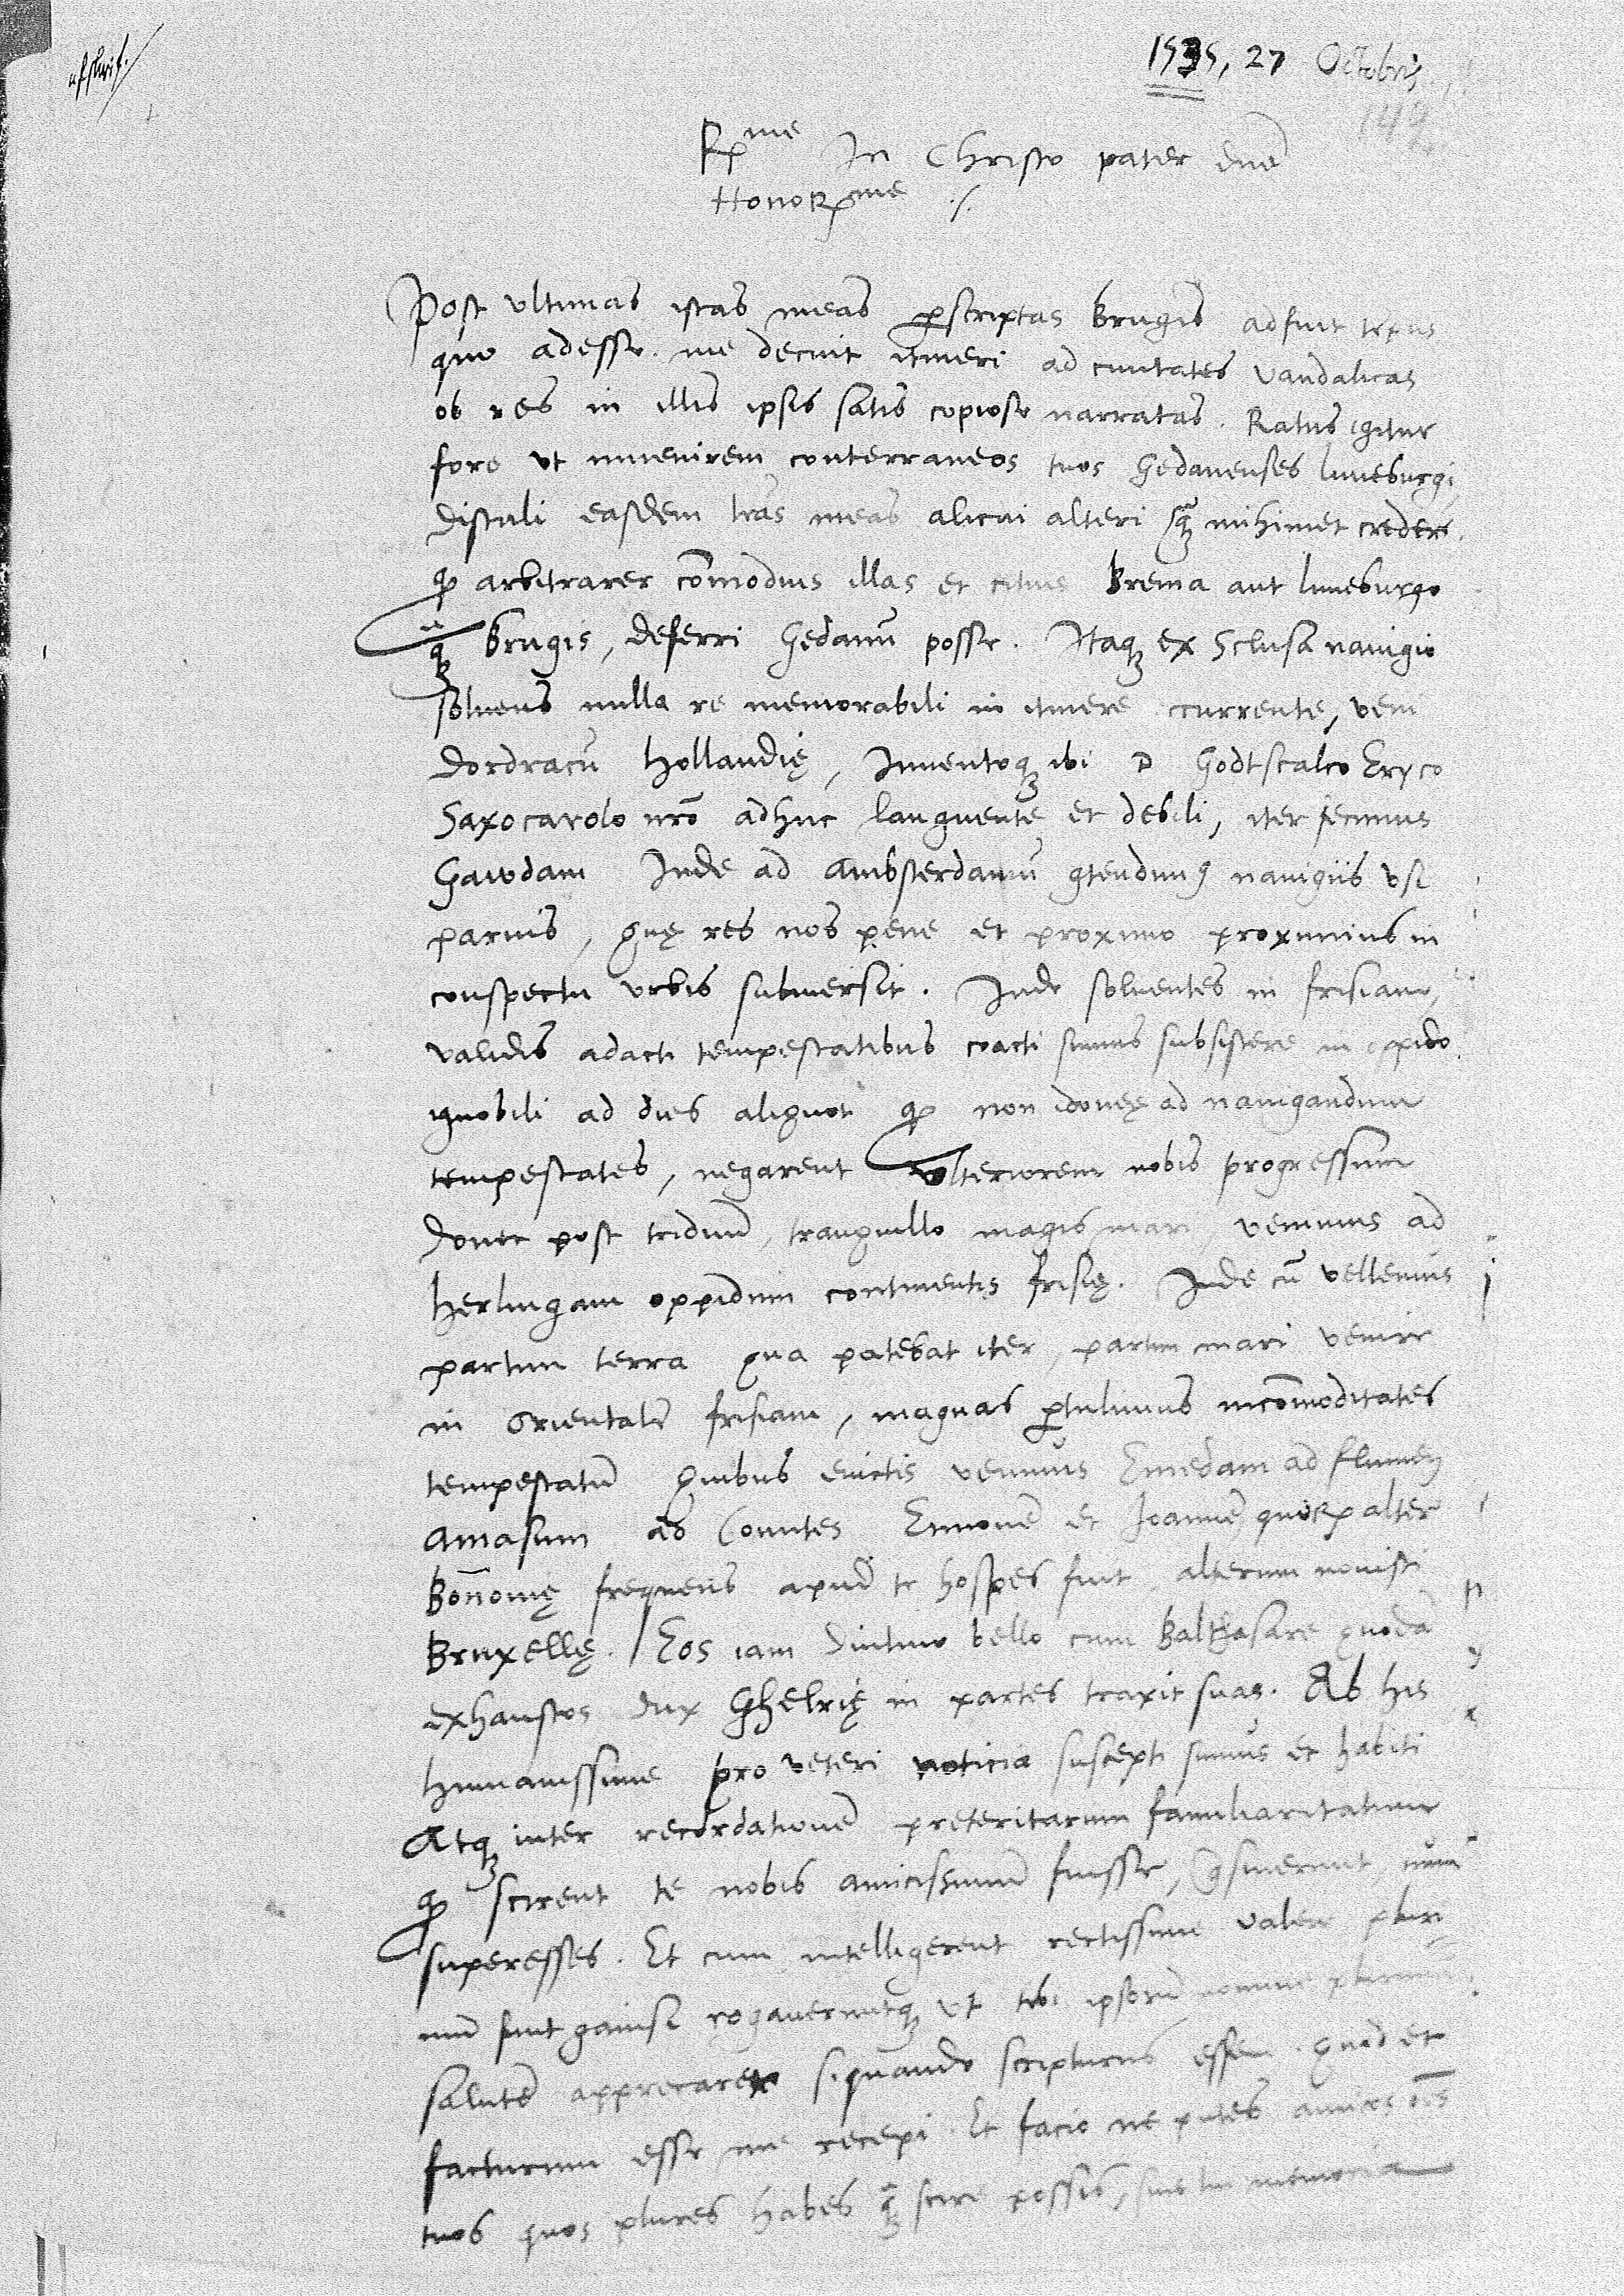 1535, 27 Octobris
149
Rme In Christo pater dne
Honorme ./.
Post ultimas istas meas perscriptas Brugis adfuit tempus
quo adesse me decuit itineri ad civitates Vandalicas
ob res in illis ipsis satis copiose narratas. Ratus igitur
fore ut invenirem conterraneos tuos Gedanenses Luneburgi,
distuli easdem lras meas alicui alteri qua mihimet credere.
qd arbitrarer comodius illas et citius Brema aut Luneburgo
qua Brugis, deferri Gedanu posse. Itaq ex Sclusa navigio
solvens nulla re memorabili in itinere occurrente, veni
Dordracu Hollandię, Inventoq ibi D Godtscalco Eryco
Saxocarolo nro adhuc languente et debili, iter fecimus
Gawdam Inde ad Ambsterdamu contendimus navigiis usi
parvis, quę res nos pene et proximo proximius in
conspectu urbis submersit. Inde solventes in frisiam,
validis adacti tempestatibus coacti sumus subsistere in oppido
ignobili ad dies aliquot qd non idoneę ad navigandum
tempestates, negarent ulteriorem nobis progressum
donec post triduu, tranquillo magis mari, venimus ad
Herlingam oppidum continentis frisię. Inde cu vellemus
partim terra qua patebat iter, partim mari venire
in orientale frisiam, magnas pertulimus incomoditates
tempestatu quibus evictis venimus Emedam ad flumen
Amasum ad Comites Ennone et Joanne, quorum alter
Bononię frequens apud te hospes fuit alterum novisti
Bruxellę. Eos iam diutino bello cum Balthasare quoda
exhaustos dux Ghelrię in partes traxit suas. Ab his
humanissime pro veteri noticia suscepti sumus et habiti
Atq inter recordatione preteritarum familiaritatum
qd scirent te nobis amicissimum fuisse, quesiverunt num
superesses. Et cum intelligerent rectissime valere pluri=
mu sunt gavisi rogaveruntq ut tibi ipsoru nomine plurima
salute apprecarer siquando scripturus essem. quod et
facturum esse me recepi. Et facio ne putes amicos ois
tuos quos plures habes qua scire possis, sine tui memoria